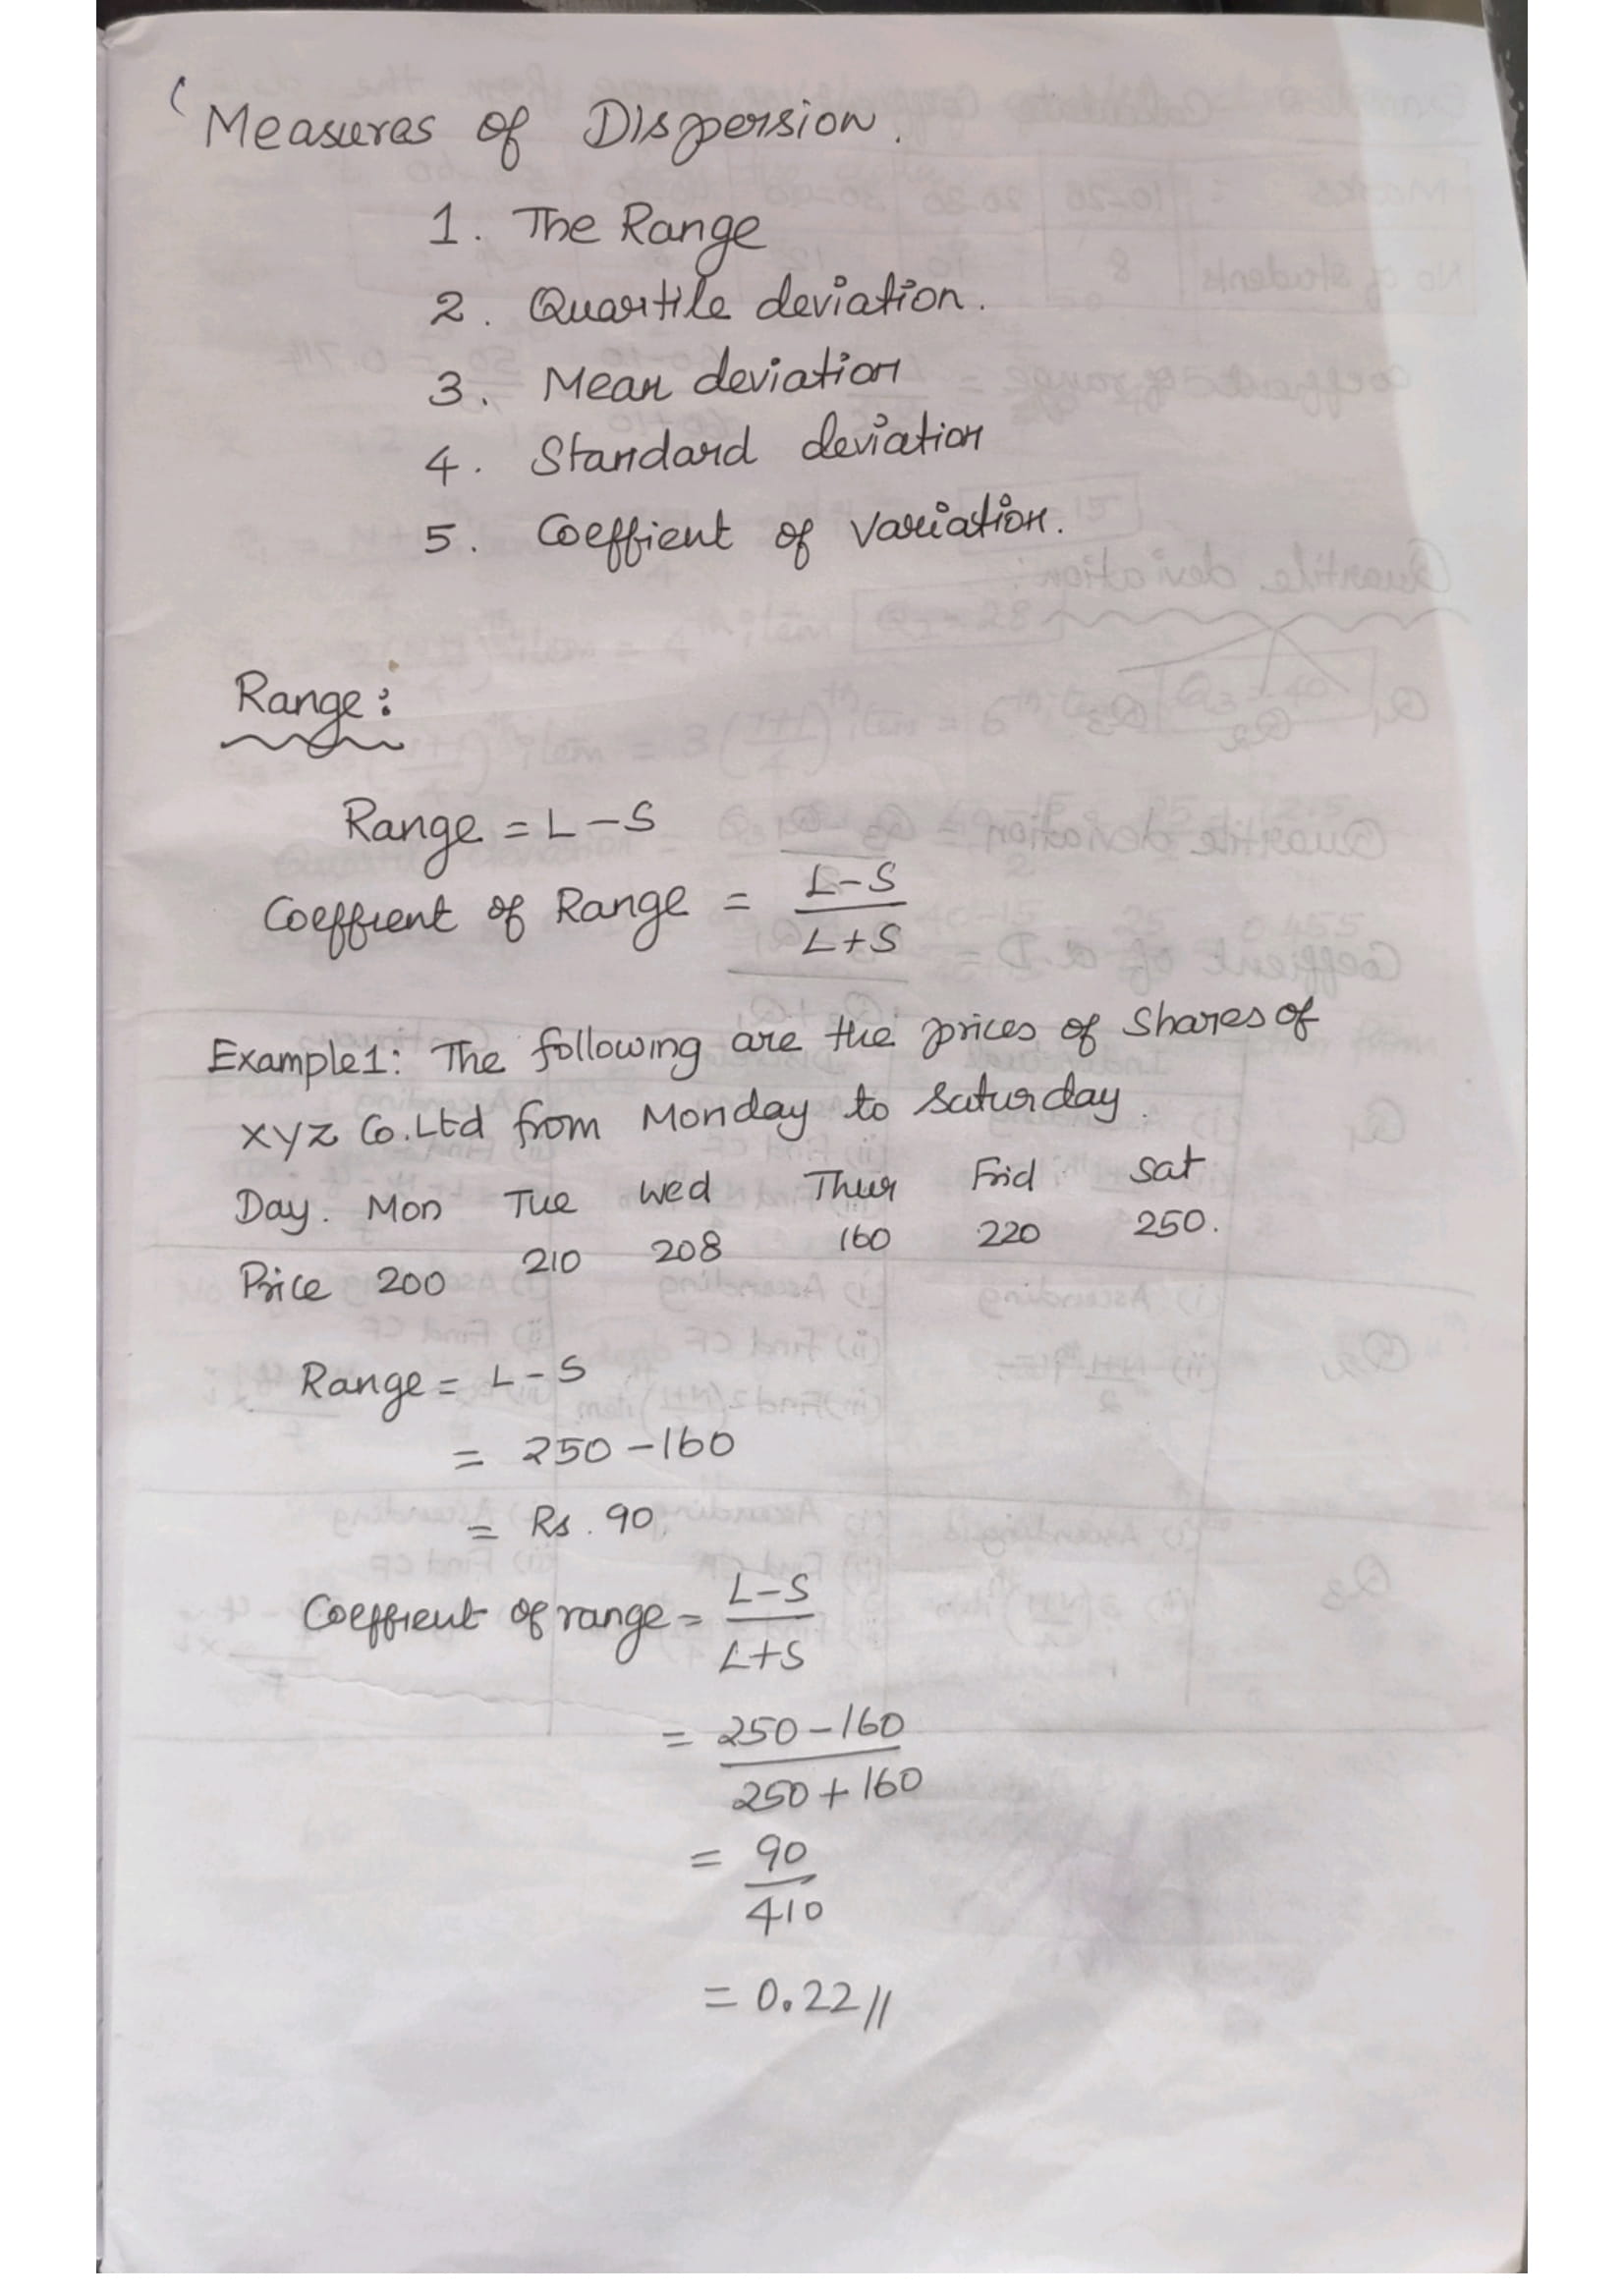 Measures of Dispersion.
1. The Range
2. Quartile deviation.
3. Mean deviation
4. Standard deviation
5. Coeffient of Variation.
Range:
Range = L-S
Coeffient of Range = L-S / L+S
Example1: The following are the prices of Shares of
XYZ Co.Ltd from Monday to Saturday.
Day. Mon Tue Wed Thur Frid Sat
Price 200 210 208 160 220 250.
Range = L-S
= 250-160
= Rs. 90.
Coeffient of range = L-S / L+S
= 250-160 / 250+160
= 90 / 410
= 0.22//